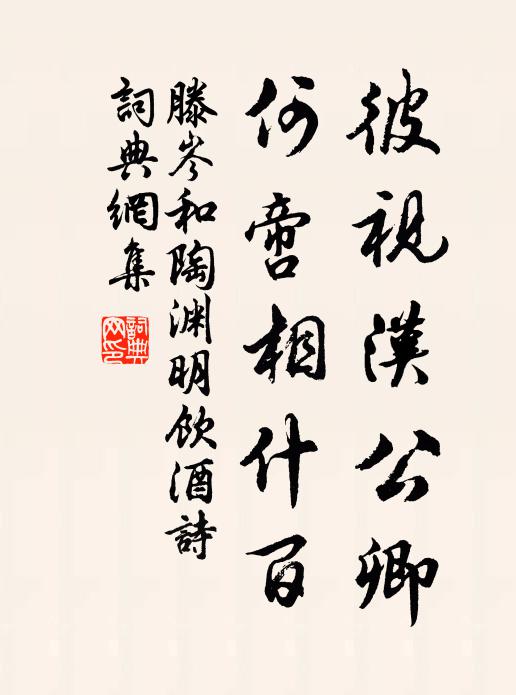 彼視漢公卿
何啻相什百
滕岑和陶渊明饮酒詩
詞典網集
詞典网印